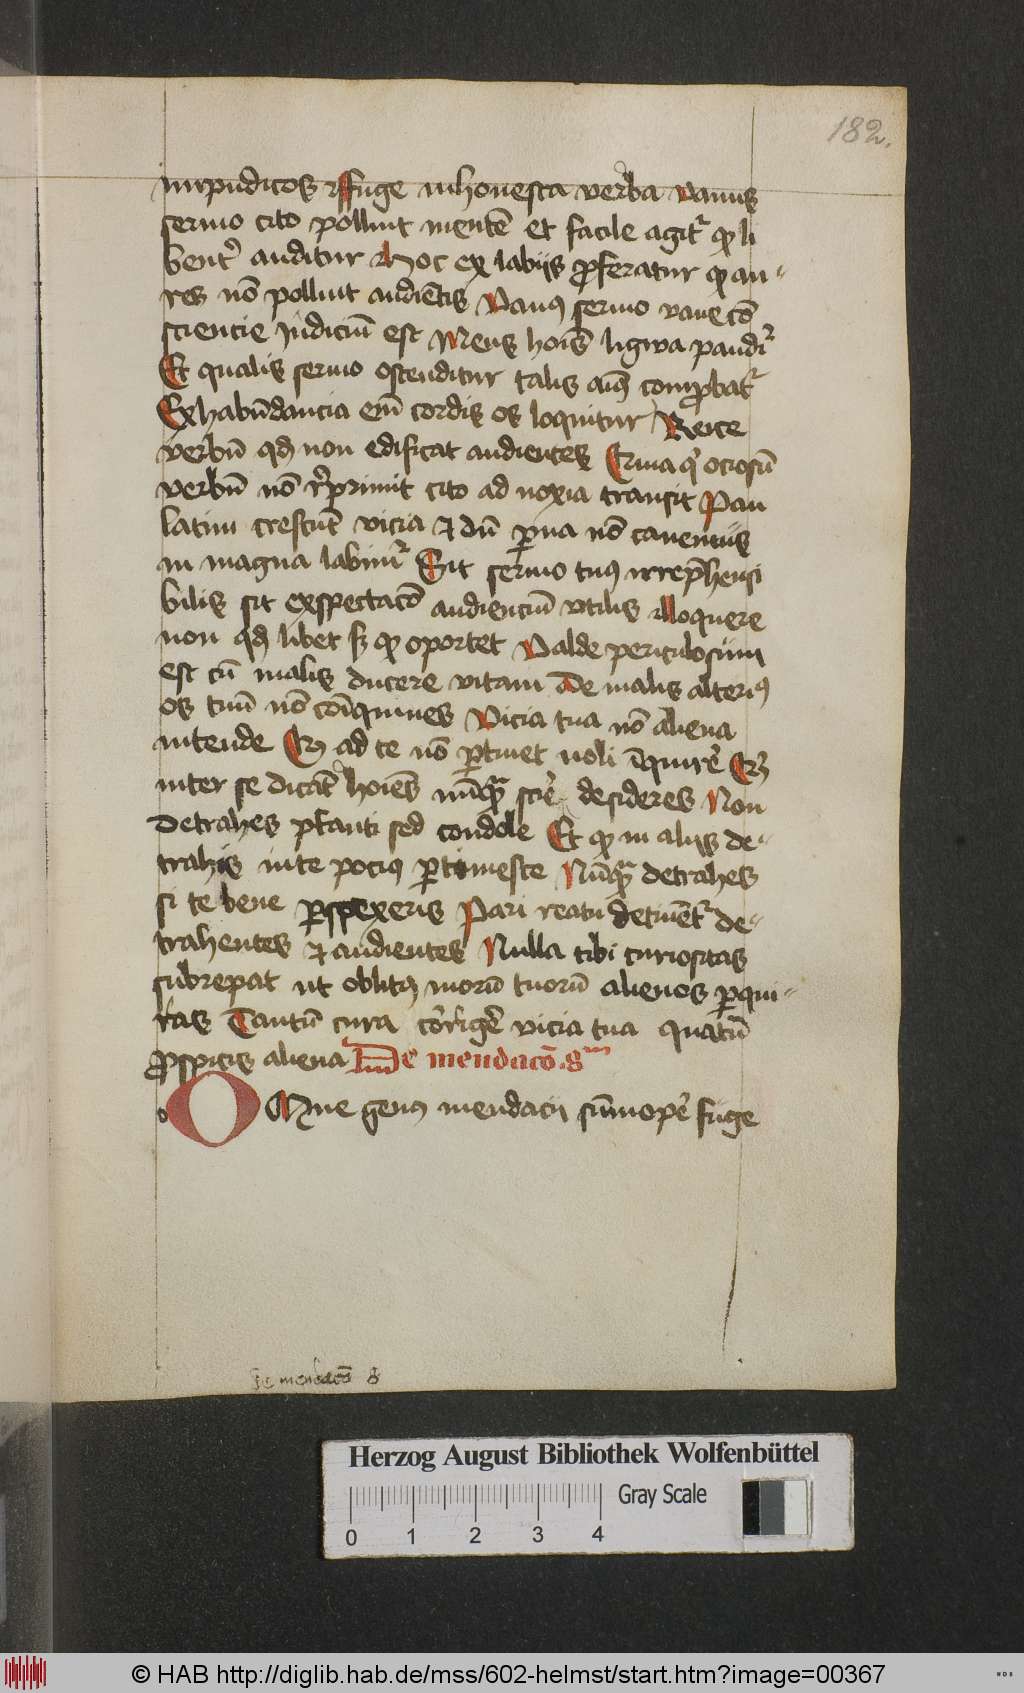 182.
impudicos ffuge inhonesta verba vanus
sermo cito polluit mentē et facile agit᷑ qđ li
bent᷑ auditur Hoc ex labijs ꝓferatur qđ au-
res nō polluit audiētis Vanꝰ sermo vane cō
sciencie iudiciū est Mens hoīs ligwa pandit᷑
Et qualis sermo ostenditur talis aīs comꝓbat᷑
Exhabūdancia eīn cordis os loquitur Reice
verbū qđ non edificat audientes Crua qͥ ociosū
verbū nō rep̄rimit cito ad noxia transit Pau
latim crescūt vicia et dū ꝑua nō cauentus
in magna labimr᷑ Sit sermo tuꝰ irrep̄hensi
bilis sit exspectacōe audienciū vtilis lloquere
non qđ libet sꝫ qđ oportet Valde periculosum
est cū malis ducere vitam De malis alteriꝰ
os tuū nō coīquines Vicia tua nō aliena
intende Qđ ad te nō ꝑtinet noli īquirē Qđ
inter se dicāt hoīes nūqᷓ scīe desideres Non
detrahes pctanti sed condole Et qđ in alijs de-
trahis in te pociꝰ ꝑtimesce Nūqᷓ detrahes
si te bene ꝑspexeris Pari reatu detinēt᷑ de-
trahentes et audientes Nulla tibi curiositas
subrepat ut oblitꝰ morū tuorū alienos ꝑqui-
ras Tantū cura corrigē vicia tua quātū
ꝓspicis aliena De mendacō. gm
OMne genꝰ mendacij sūmopē fuge
de mendacō g
Herzog August Bibliothek Wolfenbüttel
Gray Scale
0 1 2 3 4
© HAB http://diglib.hab.de/mss/602-helmst/start.htm?image=00367